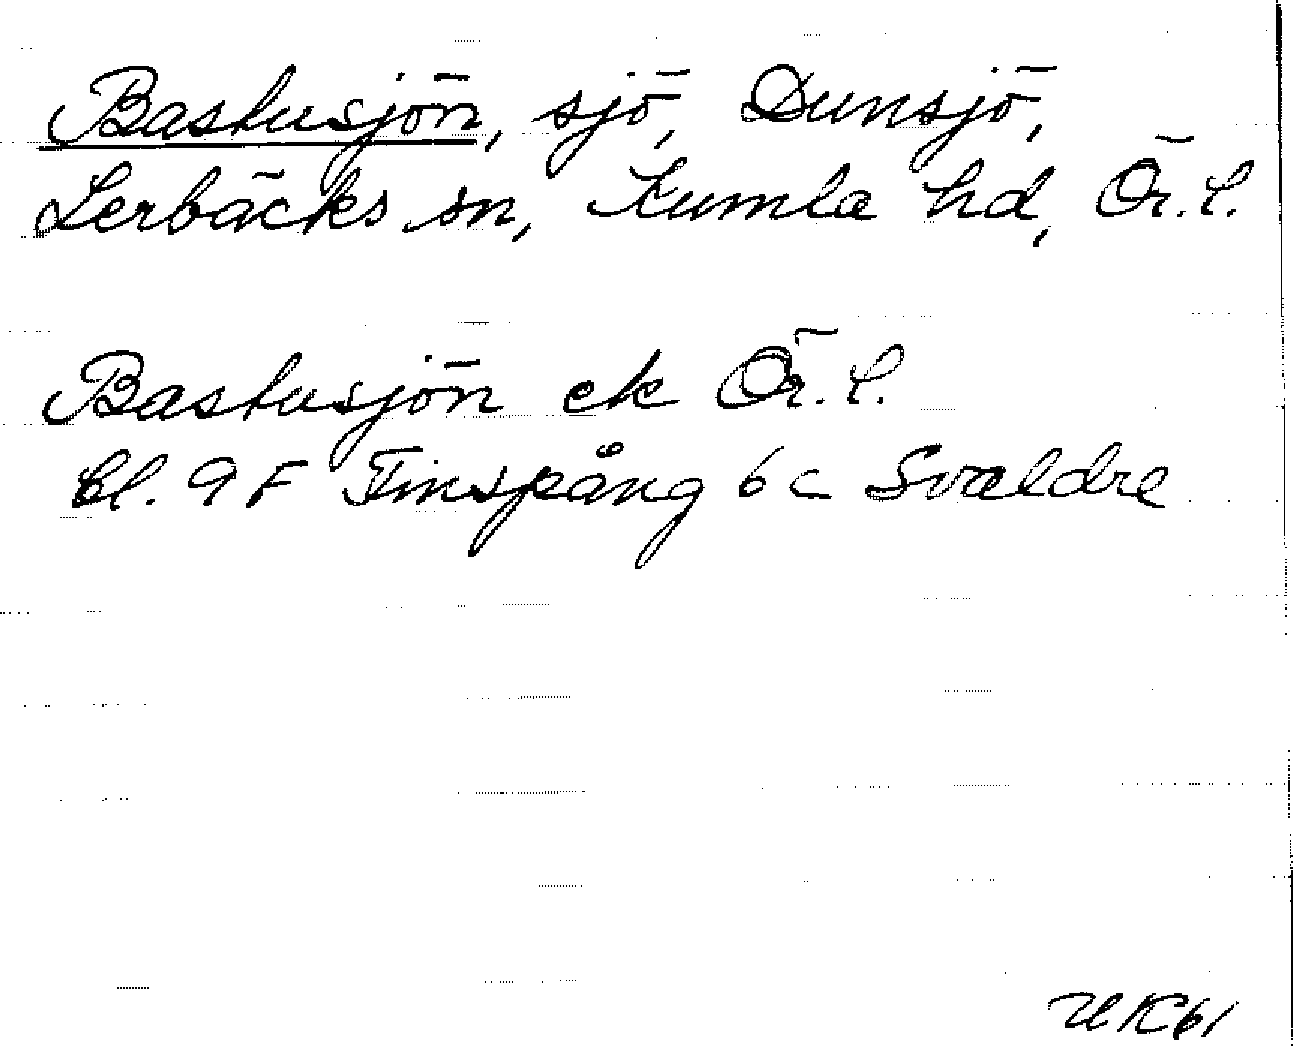 Bastusjön, sjö, Dunsjö,
Lerbäcks sn, Kumla hd, Ör. l.
Bastusjön ek Ör. l.
bl. 9 F Finspång 6 c Svaldre
UK61